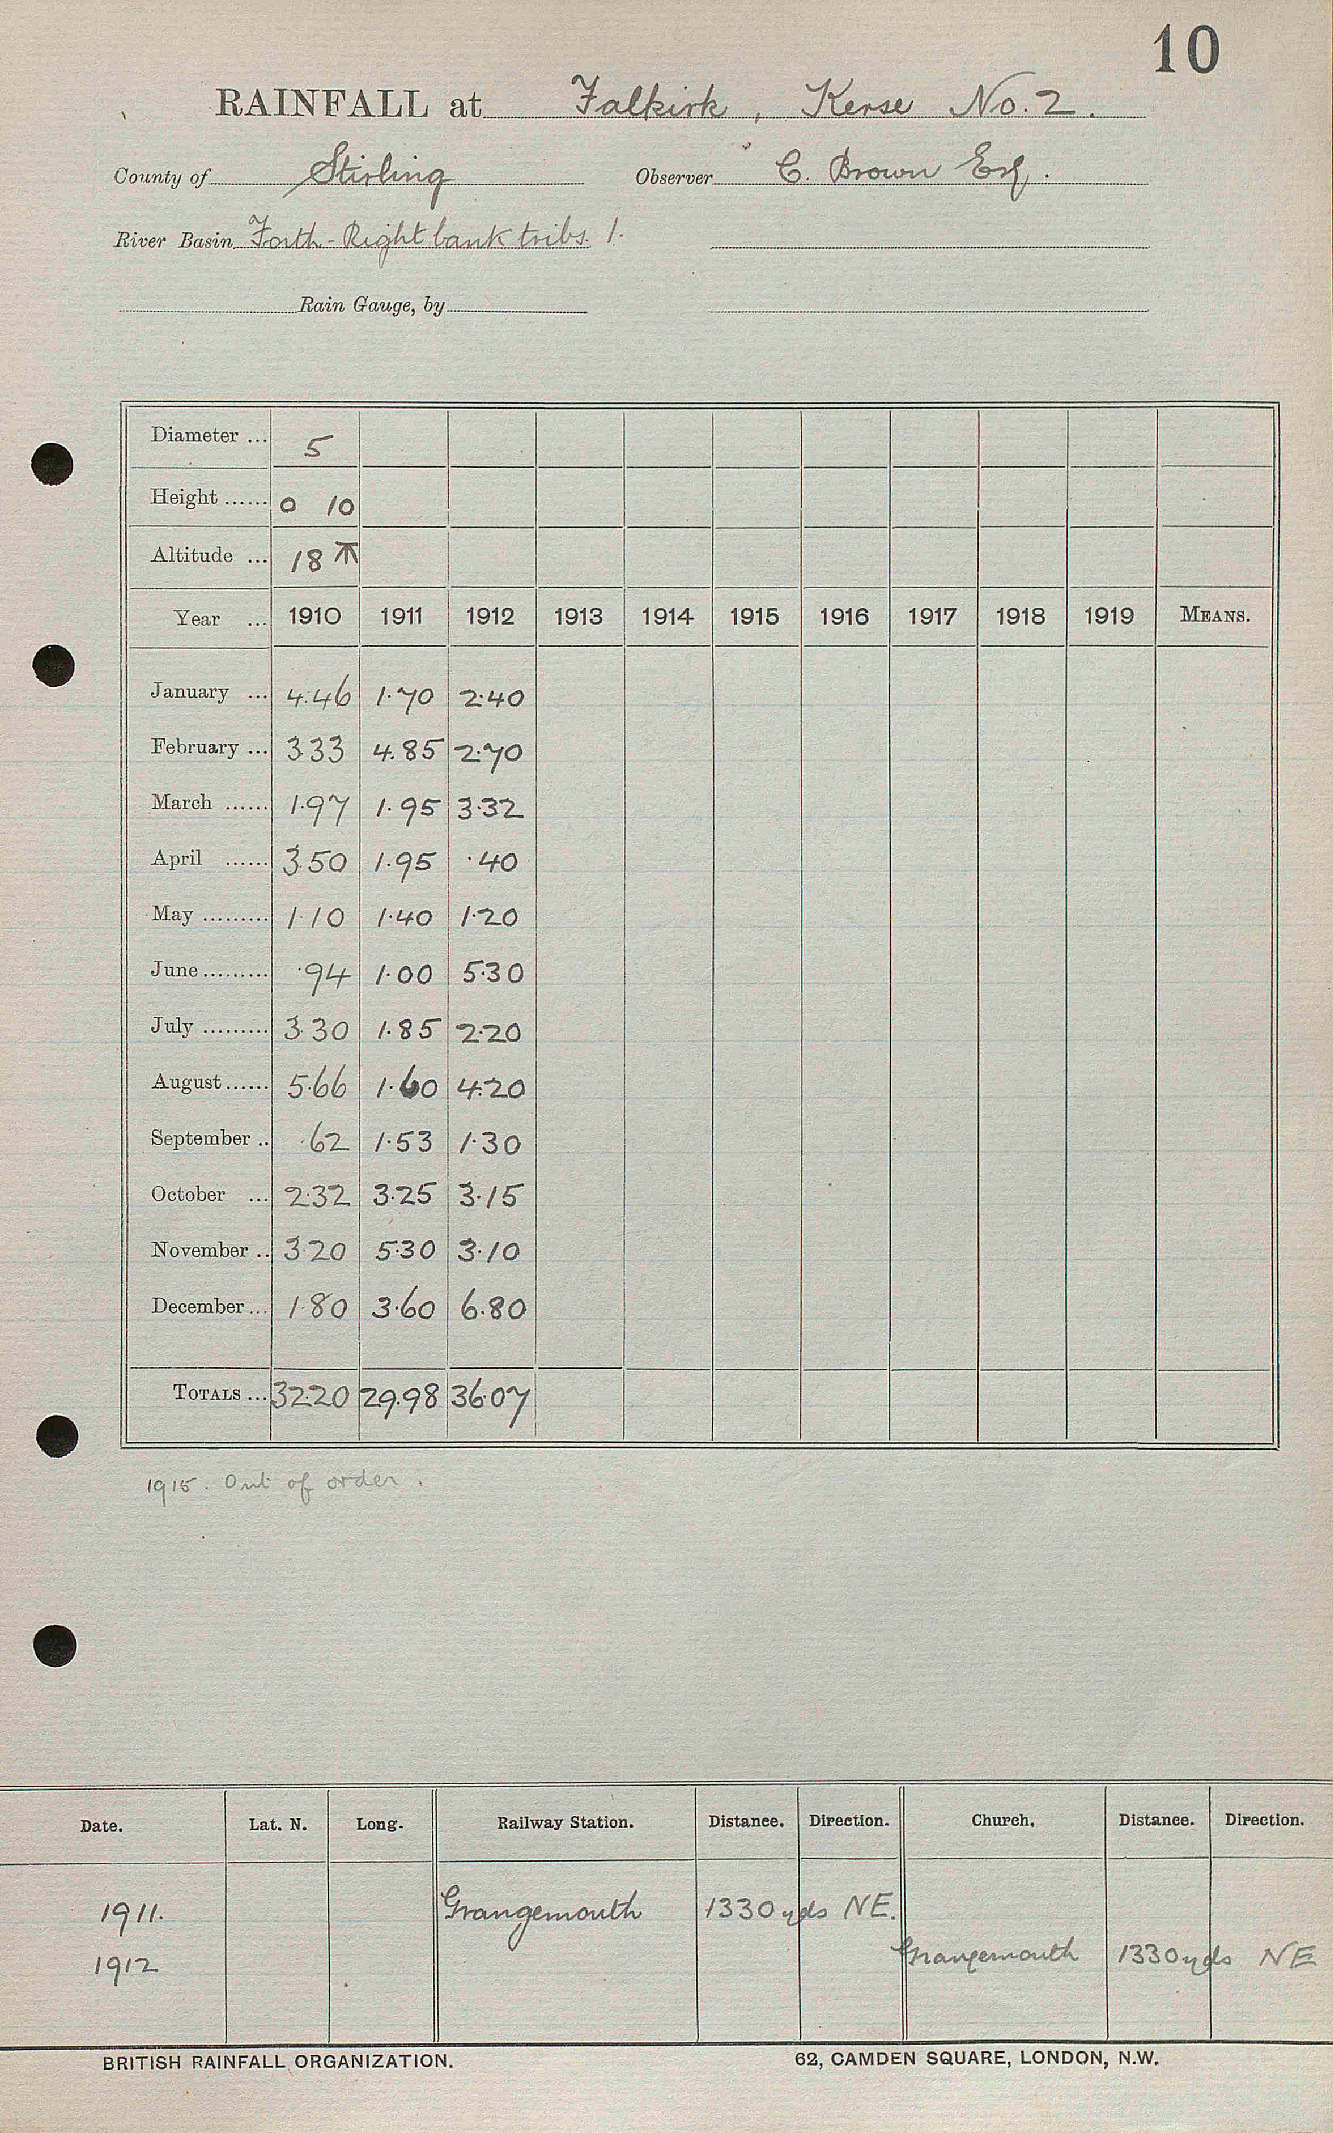 10
RAINFALL at Falkirk, Kerse No. 2.
County of Stirling Observer C. Brown Esq.
River Basin Forth - Right bank tribs. 1.
Rain Gauge, by
Diameter ... 5
Height ...... 0 10
Altitude ... 18
Year ... 1910 1911 1912 1913 1914 1915 1916 1917 1918 1919 MEANS.
January ... 4.46 1.70 2.40
February ... 3.33 4.85 2.70
March ...... 1.97 1.95 3.32
April ...... 3.50 1.95 .40
May ......... 1.10 1.40 1.20
June ......... .94 1.00 5.30
July ......... 3.30 1.85 2.20
August ...... 5.66 1.60 4.20
September .. .62 1.53 1.30
October ... 2.32 3.25 3.15
November .. 3.20 5.30 3.10
December ... 1.80 3.60 6.80
TOTALS ... 32.20 29.98 36.07
1915. Out of order.
Date. Lat. N. Long. Railway Station. Distance. Direction. Church. Distance. Direction.
1911. Grangemouth 1330 yds NE.
1912 Grangemouth 1330 yds NE
BRITISH RAINFALL ORGANIZATION. 62, CAMDEN SQUARE, LONDON, N.W.